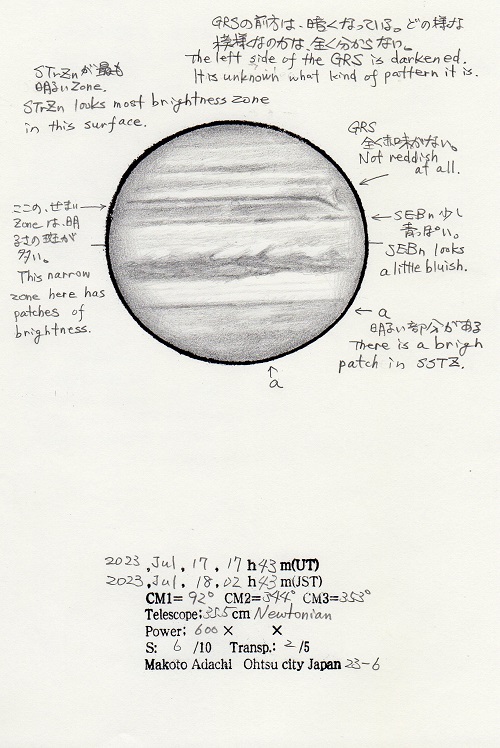 GRSの前方は、暗くなっている。どの様な
模様なのかは、全く分からない。
The left side of the GRS is darkened.
It is unknown what kind of pattern it is.
STrZnが最も
明るいZone.
STrZn looks most brightness zone
in this surface.
GRS
全く赤味がない。
Not reddish
at all.
ここの、せまい
Zoneは、明
るさの斑が
多い。
This narrow
zone here has
patches of
brightness.
SEBn 少し
青っぽい。
SEBn looks
a little bluish.
a
明るい部分がある
There is a brigh
patch in SSTZ.
a
2023,Jul,17,17h43m(UT)
2023,Jul,18,02h43m(JST)
CM1=92° CM2=344° CM3=353°
Telescope;35.5cm Newtonian
Power; 600× ×
S: 6 /10 Transp.: 2/5
Makoto Adachi Ohtsu city Japan 23-6